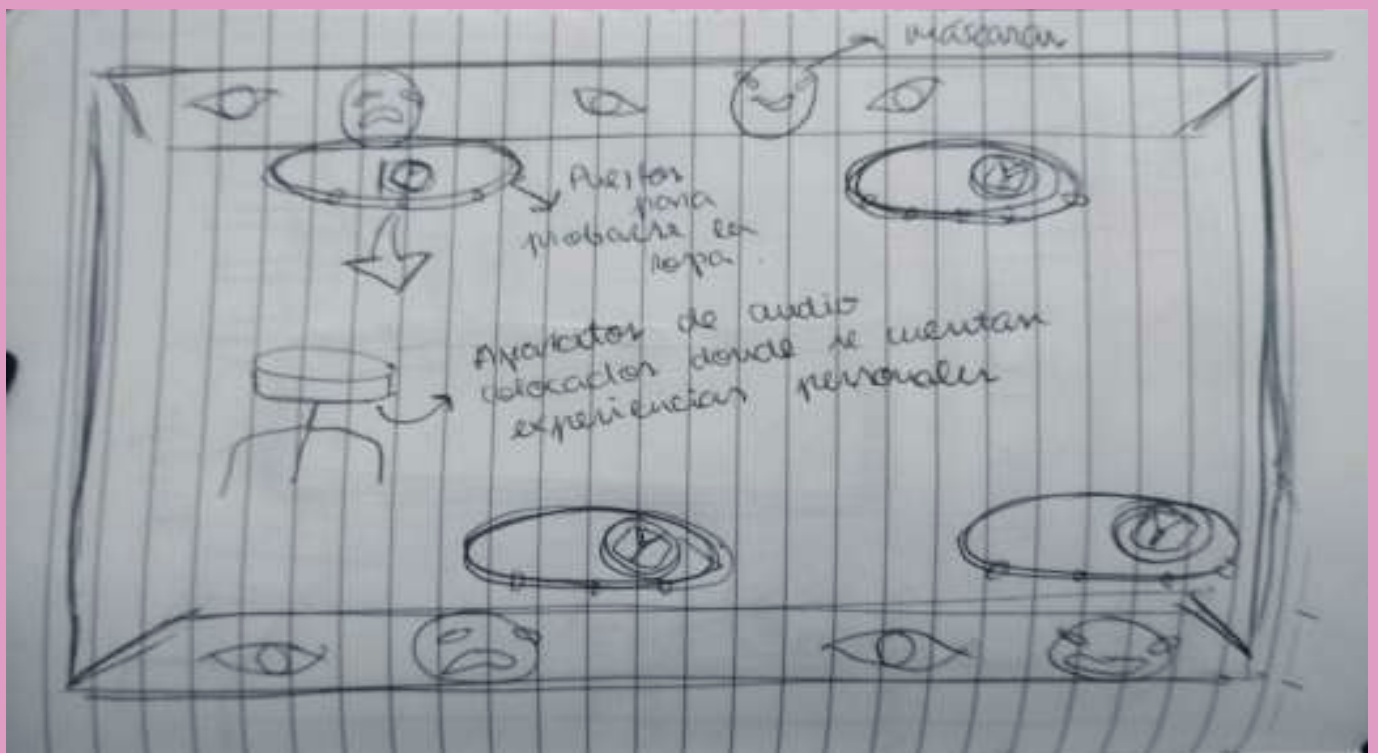 máscaras
Puestos
para
probarse la
ropa.
Aparatos de audio
colocados donde se cuentan
experiencias personales